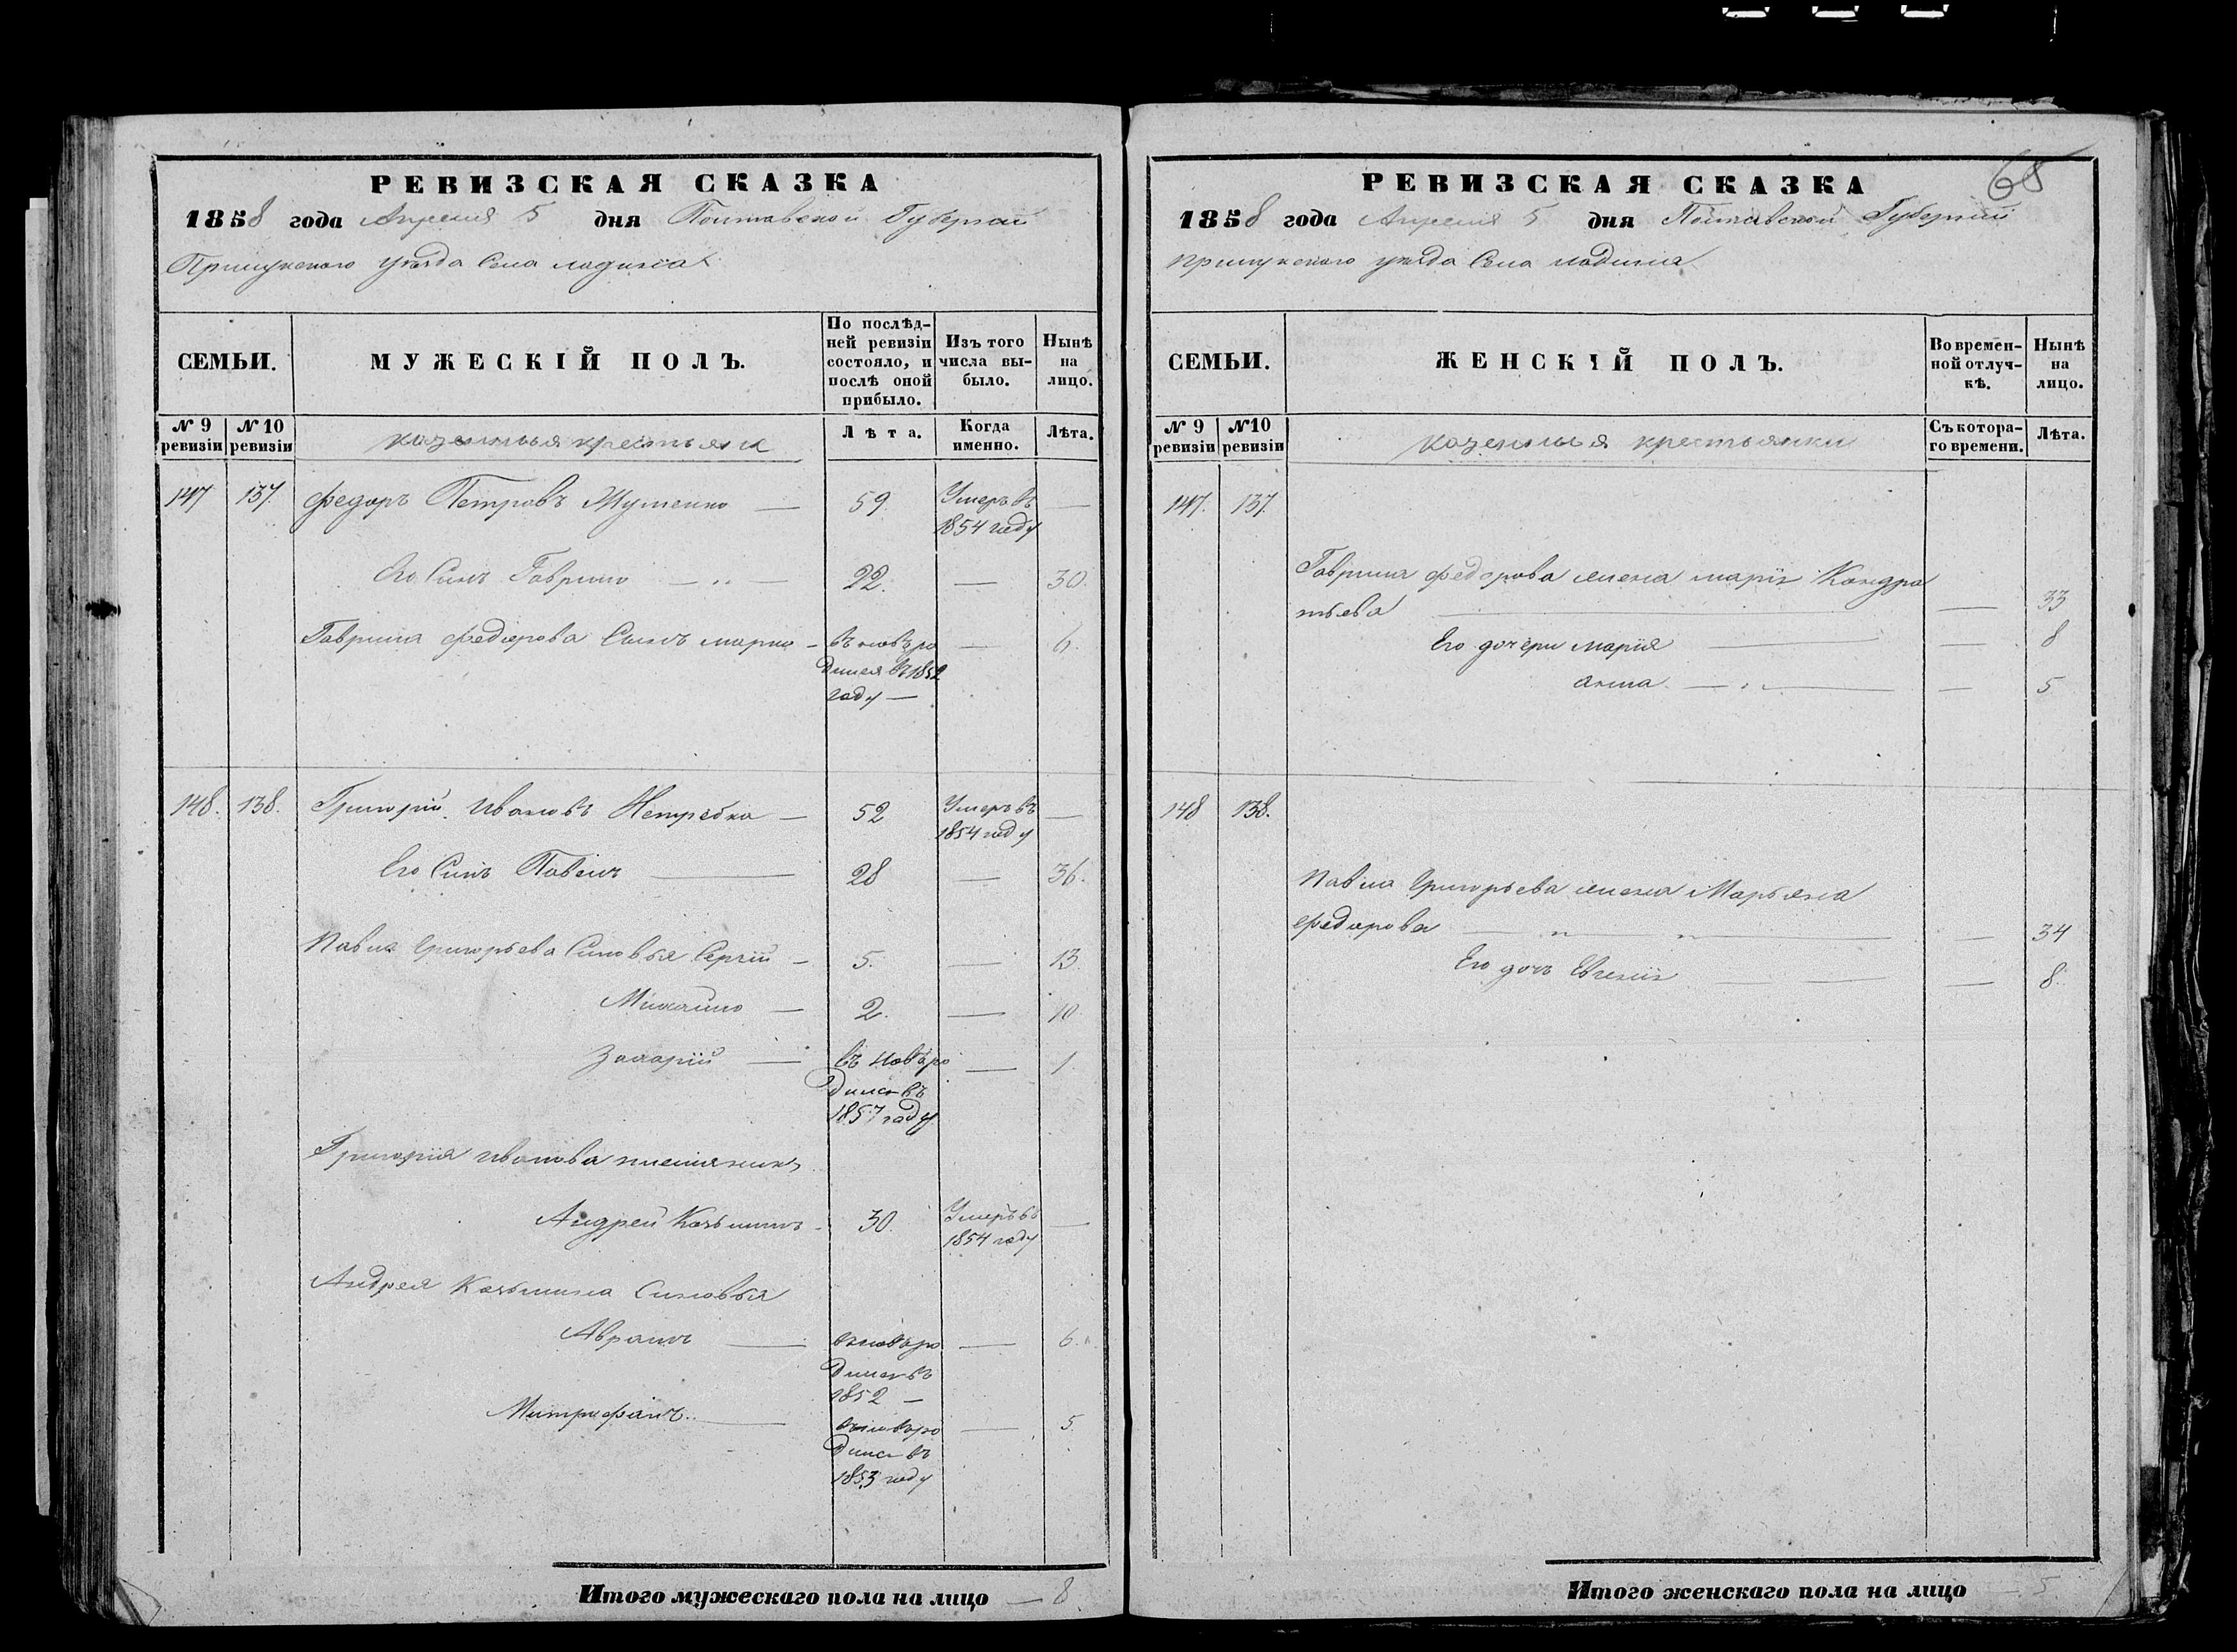 РЕВИЗСКАЯ СКАЗКА
1858 года Апреля 5 дня Полтавской Губернии
Прилукского уѣзда Села Ладина
СЕМЬИ.
МУЖЕСКІЙ ПОЛЪ.
По послѣд-
ней ревизіи
состояло, и
послѣ оной
прибыло.
Изъ того
числа вы-
было.
Нынѣ
на
лицо.
№ 9
ревизіи
№ 10
ревизіи
казенныя крестьяне
Лѣта.
Когда
именно.
Лѣта.
147 137. Федоръ Петровъ 59. Умеръ въ
1854 году
Его Синъ Гаврило 22. — 30.
Гаврила Федорова Сынъ Марко — въ новѣ ро — 6.
дился въ 1852
году —
148. 138. Григорій Ивановъ Нетребка — 52 Умеръ въ —
1854 году
Его Синъ Павелъ — 28 — 36.
Павла Григорьева Синовья Сергій — 5. — 13.
Михайло — 2. — 10.
Захарій — въ новѣ ро — 1.
дился въ
1857 году
Григорія Иванова племянникъ
Андрей Козьминъ — 30. Умеръ въ —
1854 году
Андрея Козьмина Синовья
Аврамъ — въ новѣ ро — 6.
дился въ
1852 —
Митрофанъ. — въ новѣ ро — 5.
дился въ
1853 году
Итого мужескаго пола на лицо — 8.
68
РЕВИЗСКАЯ СКАЗКА
1858 года Апреля 5 дня Полтавской Губерніи
Прилукского уѣзда Села Ладина
СЕМЬИ.
ЖЕНСКІЙ ПОЛЪ.
Во времен-
ной отлуч-
кѣ.
Нынѣ
на
лицо.
№ 9
ревизіи
№ 10
ревизіи
казенныя крестьянки
Съ котора-
го времени.
Лѣта.
147. 137.
Гаврила Федорова жена Марія Кондра
тьева — 33
Его дочери Мария — 8
Анна — 5
148 138.
Павла Григорьева жена Марьяна
Федорова — 34
Его дочь Евгенія — 8.
Итого женскаго пола на лицо — 5